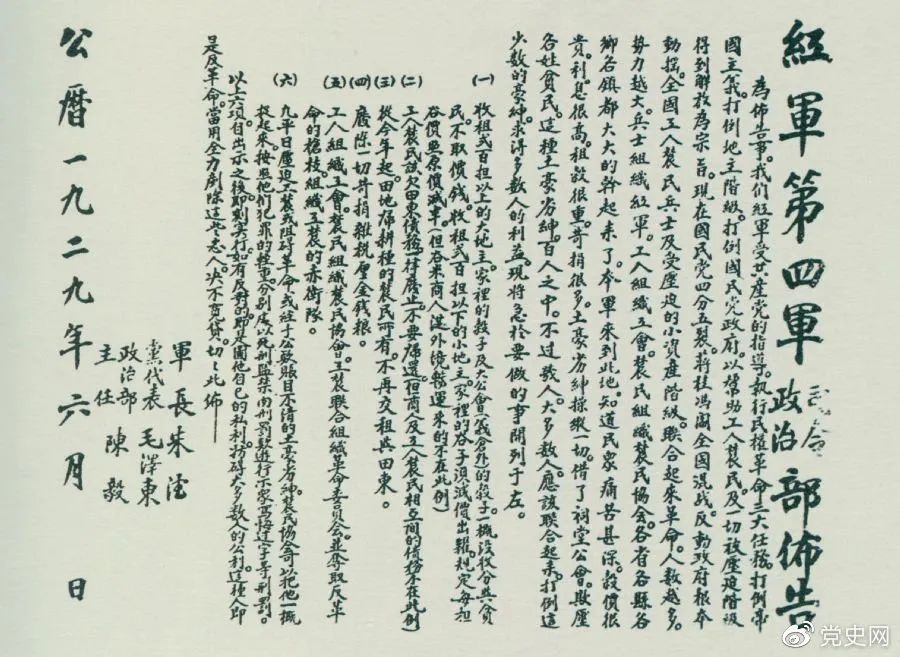 紅軍第四軍司令政治部佈告
為佈告事。我們紅軍受共產党的指導。執行民權革命三大任務。打倒帝
國主義。打倒地主階級。打倒國民党政府。以幫助工人農民。及一切被壓迫階級
得到解放為宗旨。現在國民党四分五裂。蔣桂馮閻全國混战。反動政府根本
動搖。全國工人農民兵士及受壓迫的小資產階級。聯合起來革命。人数越多。
勢力越大。兵士組織紅軍。工人組織工會。農民組織農民協会。各省各縣各
鄉各鎮都大大的幹起来了。本軍來到此地。知道民衆痛苦甚深。穀價很
貴。利息很高。租穀很重。苛捐很多。土豪劣紳操縱一切。借了祠堂公會。欺壓
各姓貧民。這種土豪劣紳。百人之中。不过数人。大多数人。應該联合起来。打倒這
少数的豪紳。求得多数人的利益。現将急於要做的事開列于左。
(一)收租弍百担以上的大地主。家裡的穀子及大公會(義倉外)的穀子。一概没收分與貧
民。不取價钱。收租弍百担以下的小地主。家裡的谷子。須減價出糶。規定每担
谷價照原價減半。(但谷米商人從外境辦運來的不在此例)
(二)工人農民該欠田東債務。一律廢止。不要歸還。(但商人及工人農民相互間的債務不在此例)
(三)從今年起。田地歸耕種的農民所有。不再交租與田東。
(四)廢除一切苛捐雜稅厘金錢粮。
(五)工人組織工會。農民組織農民協會。工農联合組織革命委員会。並奪取反革
命的槍枝。組織工農的赤衛隊。
(六)凡平日壓迫工農。或阻碍革命。或經手公欵賬目不清的土豪劣紳。農民協會可以把他一概
捉起来。按照他们犯罪的輕重。分别處以死刑監禁肉刑罰欵遊行示家寫悔过字等刑罰。
以上六項。自出示之後。即刻實行。如有反對的。即是圖他自己的私利。妨碍大多数人的公利。這種人即
是反革命。當用全力剷除這些惡人。决不寬貸。切切此佈——
軍長朱德
黨代表毛澤東
政治部主任陳毅
公曆一九二九年六月 日
党史网